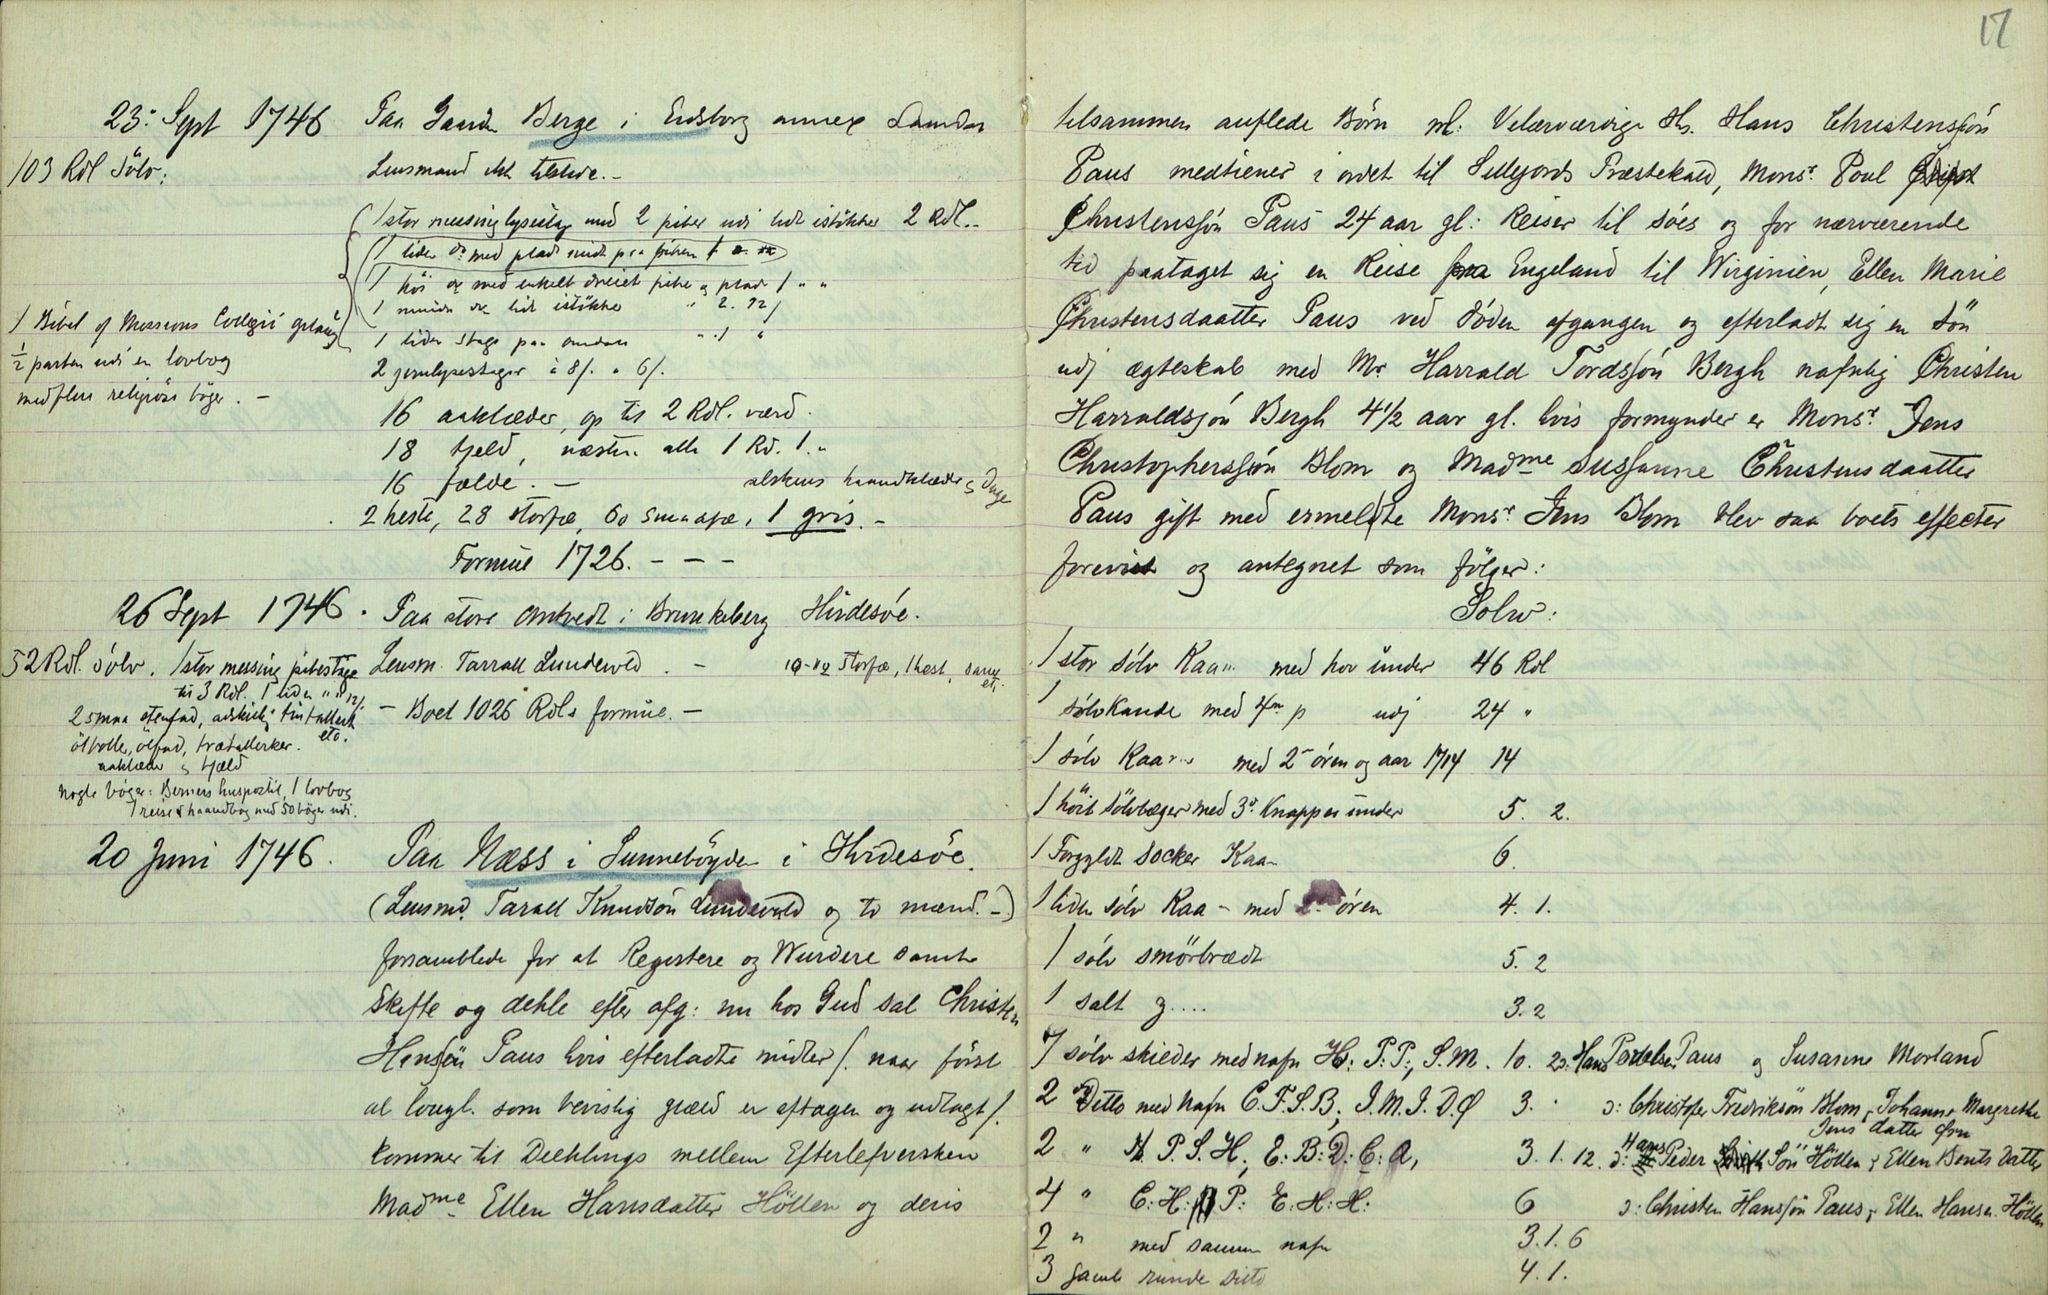 17
23: Sept 1746 Paa Gaarden Berge i Eidsborg annex Laurdal
103 Rdl Sölv: Lensmand ikke tilstede. -
1 stor messing lysestage med 2 piber udi lidt istökker 2 Rdl. -
1 liden do med plade midt paa piben
1 höi do med enkelt dreiet pibe og plade 1 " "
1 mindre do lidt istökke " 2. 12
1 Bibel of Missions Collegii
1 liden stage paa " 1 "
1/2 parten udi en lovbog
2 jernlysestager à 8/. " 6/.
med flere religiöse böger. -
16 aaklæder, op til 2 Rdl. værd.
18 tjeld, næsten alle 1 Rd. 1. "
16 fælde. - alskens haandklæder og Duge
2 heste, 28 storfæ, 60 smaafæ, 1 gris. -
Formue 1726. - - -
26 Sept 1746. Paa store Omtvedt i Brunkeberg Hvidesöe.
52 Rdl. sölv. 1 stor messing pibestage Lensm. Tarrall Lundevold. - storfæ, 1 hest, sauer etc.
til 3 Rdl. 1 liden " " 12/.
- Boet 1026 Rdls formue. -
2 smaa stenfad, adskielig tintallerk etc.
ölboller, ölfad, trætallerker.
aaklæder og tjæld
nogle böger: huspostil, 1 lovbog
1 reise & haandbog med 50 böger udi.
20 Juni 1746. Paa Næss i Sunnebögden i Hvidesöe.
(Lensmd. Tarall Knudsön Lundevold og to mænd. -)
forsamblede for at Registere og Wurdere samt
Skifte og dehle efter afg: nu hos Gud sal Christen
Hansön Paus hvis efterladte midler /. naar först
al lovgl. som bevislig gield er aftagen og udlagt /.
kommer til Deehlings mellem Efterlefversken
Madme Ellen Hansdatter Hölten og deris
tilsammen auflede Börn nl: Velærværdige Hr. Hans Christenssön
Paus medtiener i ordet til Sillejords Præstekald, Monsr. Poul
Christensjön Paus 24 aar gl: Reiser til söes og for nærværende
tid paataget sig en Reise fra Engeland til Wirginien, Ellen Marie
Christensdaatter Paus ved döden afgangen og efterladt sig en sön
udj ægteskab med Mr. Harrald Tordsjön Bergh nafnlig Christen
Harraldsjön Bergh 4 1/2 aar gl. hvis formynder er Monsr. Jens
Christophersjön Blom og Madme Susanne Christensdaatter
Paus gift med ermeldte Monsr. Jens Blom blev saa boets effecter
forevist og antegnet som fölger:
Solw:
1 stor sölv Kaa... med hov under 46 Rdl
1 sölvkande med 4 p udj 24 "
1 sölv Kaa... med 2 ören og aar 1714 14
1 höit sölvbæger med 3 Knapper under 5. 2.
1 Forgyldt Socker Kaa- 6.
1 liden sölv Kaa- med 2 ören 4. 1.
1 sölv smörbrædt 5. 2
1 salt g.... 3. 2
7 sölv skieder med nafn H: P: P:, S. M. 10. 2 ɔ: Hans Pedersen Paus og Susanne Morland
2 Ditto med Nafn C. F. S. B, J. M. J. D. Ø 3. . ɔ: Christofer Fredriksön Blom, Johanne Margrethe
Jens datter Örn
2 " H. P. S. H., E: B: D: C: A, 3. 1. 12. ɔ: Hans Peder Sön Hölten & Ellen Bents Datter
4 " C: H: P: E: H: H: 6 ɔ: Christen Hansjön Paus, Ellen Hansd. Hölten
2 " med samme nafn 3. 1. 6
3 gamle runde Ditto 4. 1.